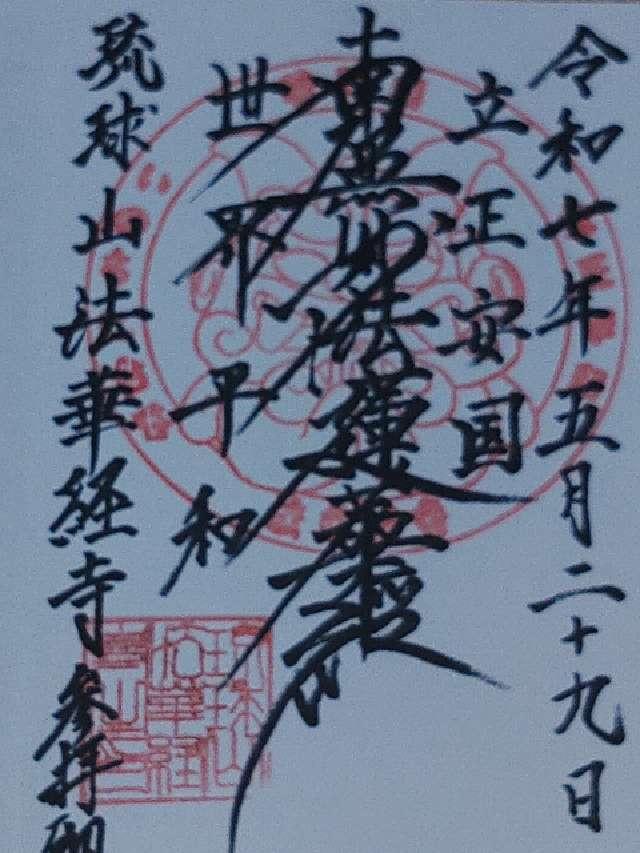 令和七年五月二十九日
立正安国
南無妙法蓮華経
世界平和
琉球山法華経寺参拝